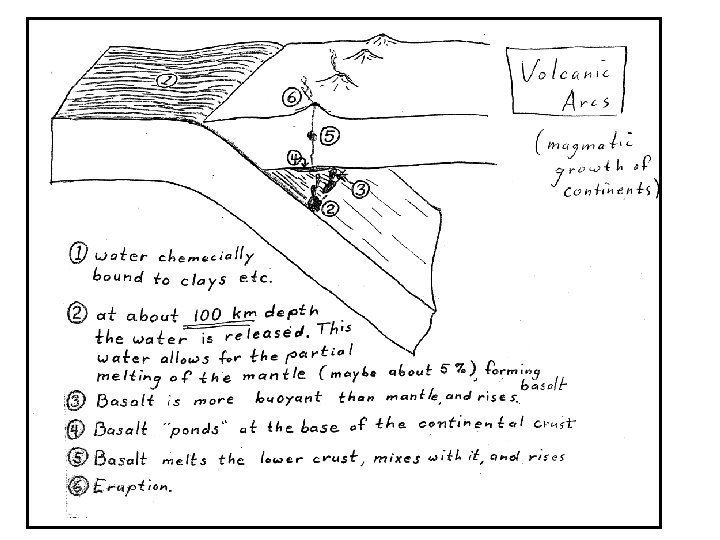 ①
Volcanic
Arcs
(magmatic
growth of
continents)
⑥
⑤
④
③
②
① water chemecially
bound to clays etc.
② at about 100 km depth
the water is released. This
water allows for the partial
melting of the mantle (maybe about 5%) forming
basalt
③ Basalt is more buoyant than mantle, and rises.
④ Basalt "ponds" at the base of the continental crust
⑤ Basalt melts the lower crust, mixes with it, and rises
⑥ Eruption.